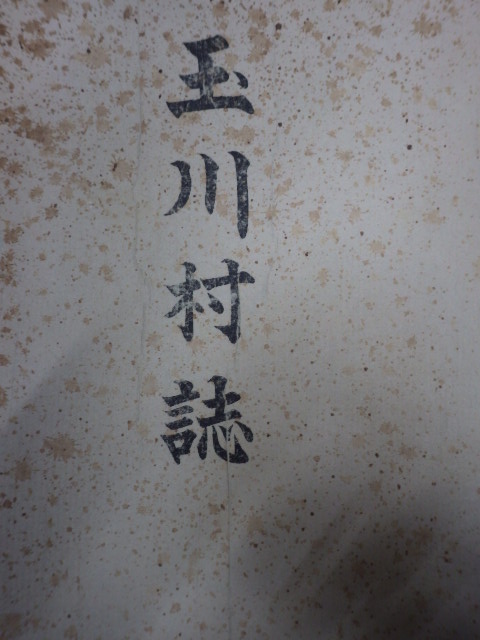 玉川村誌